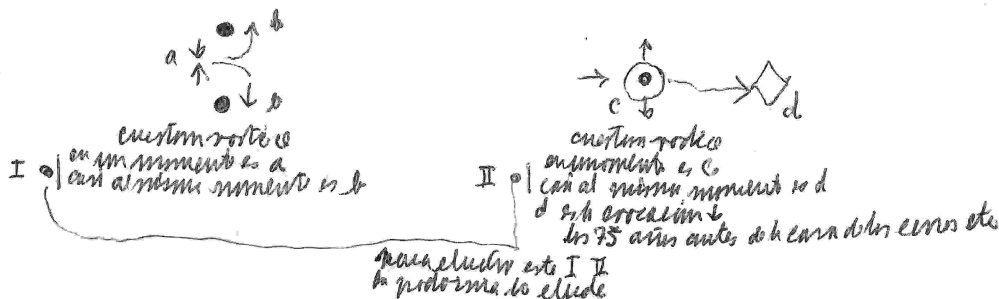 a b
b
c d
cuestion vortice
I en un momento es a
casi al mismo momento es b
cuestion vortice
en momento es c
II casi al mismo momento es d
d es la evocacion
los 75 años antes de la casa de los ecros etc
este I II
lo elude